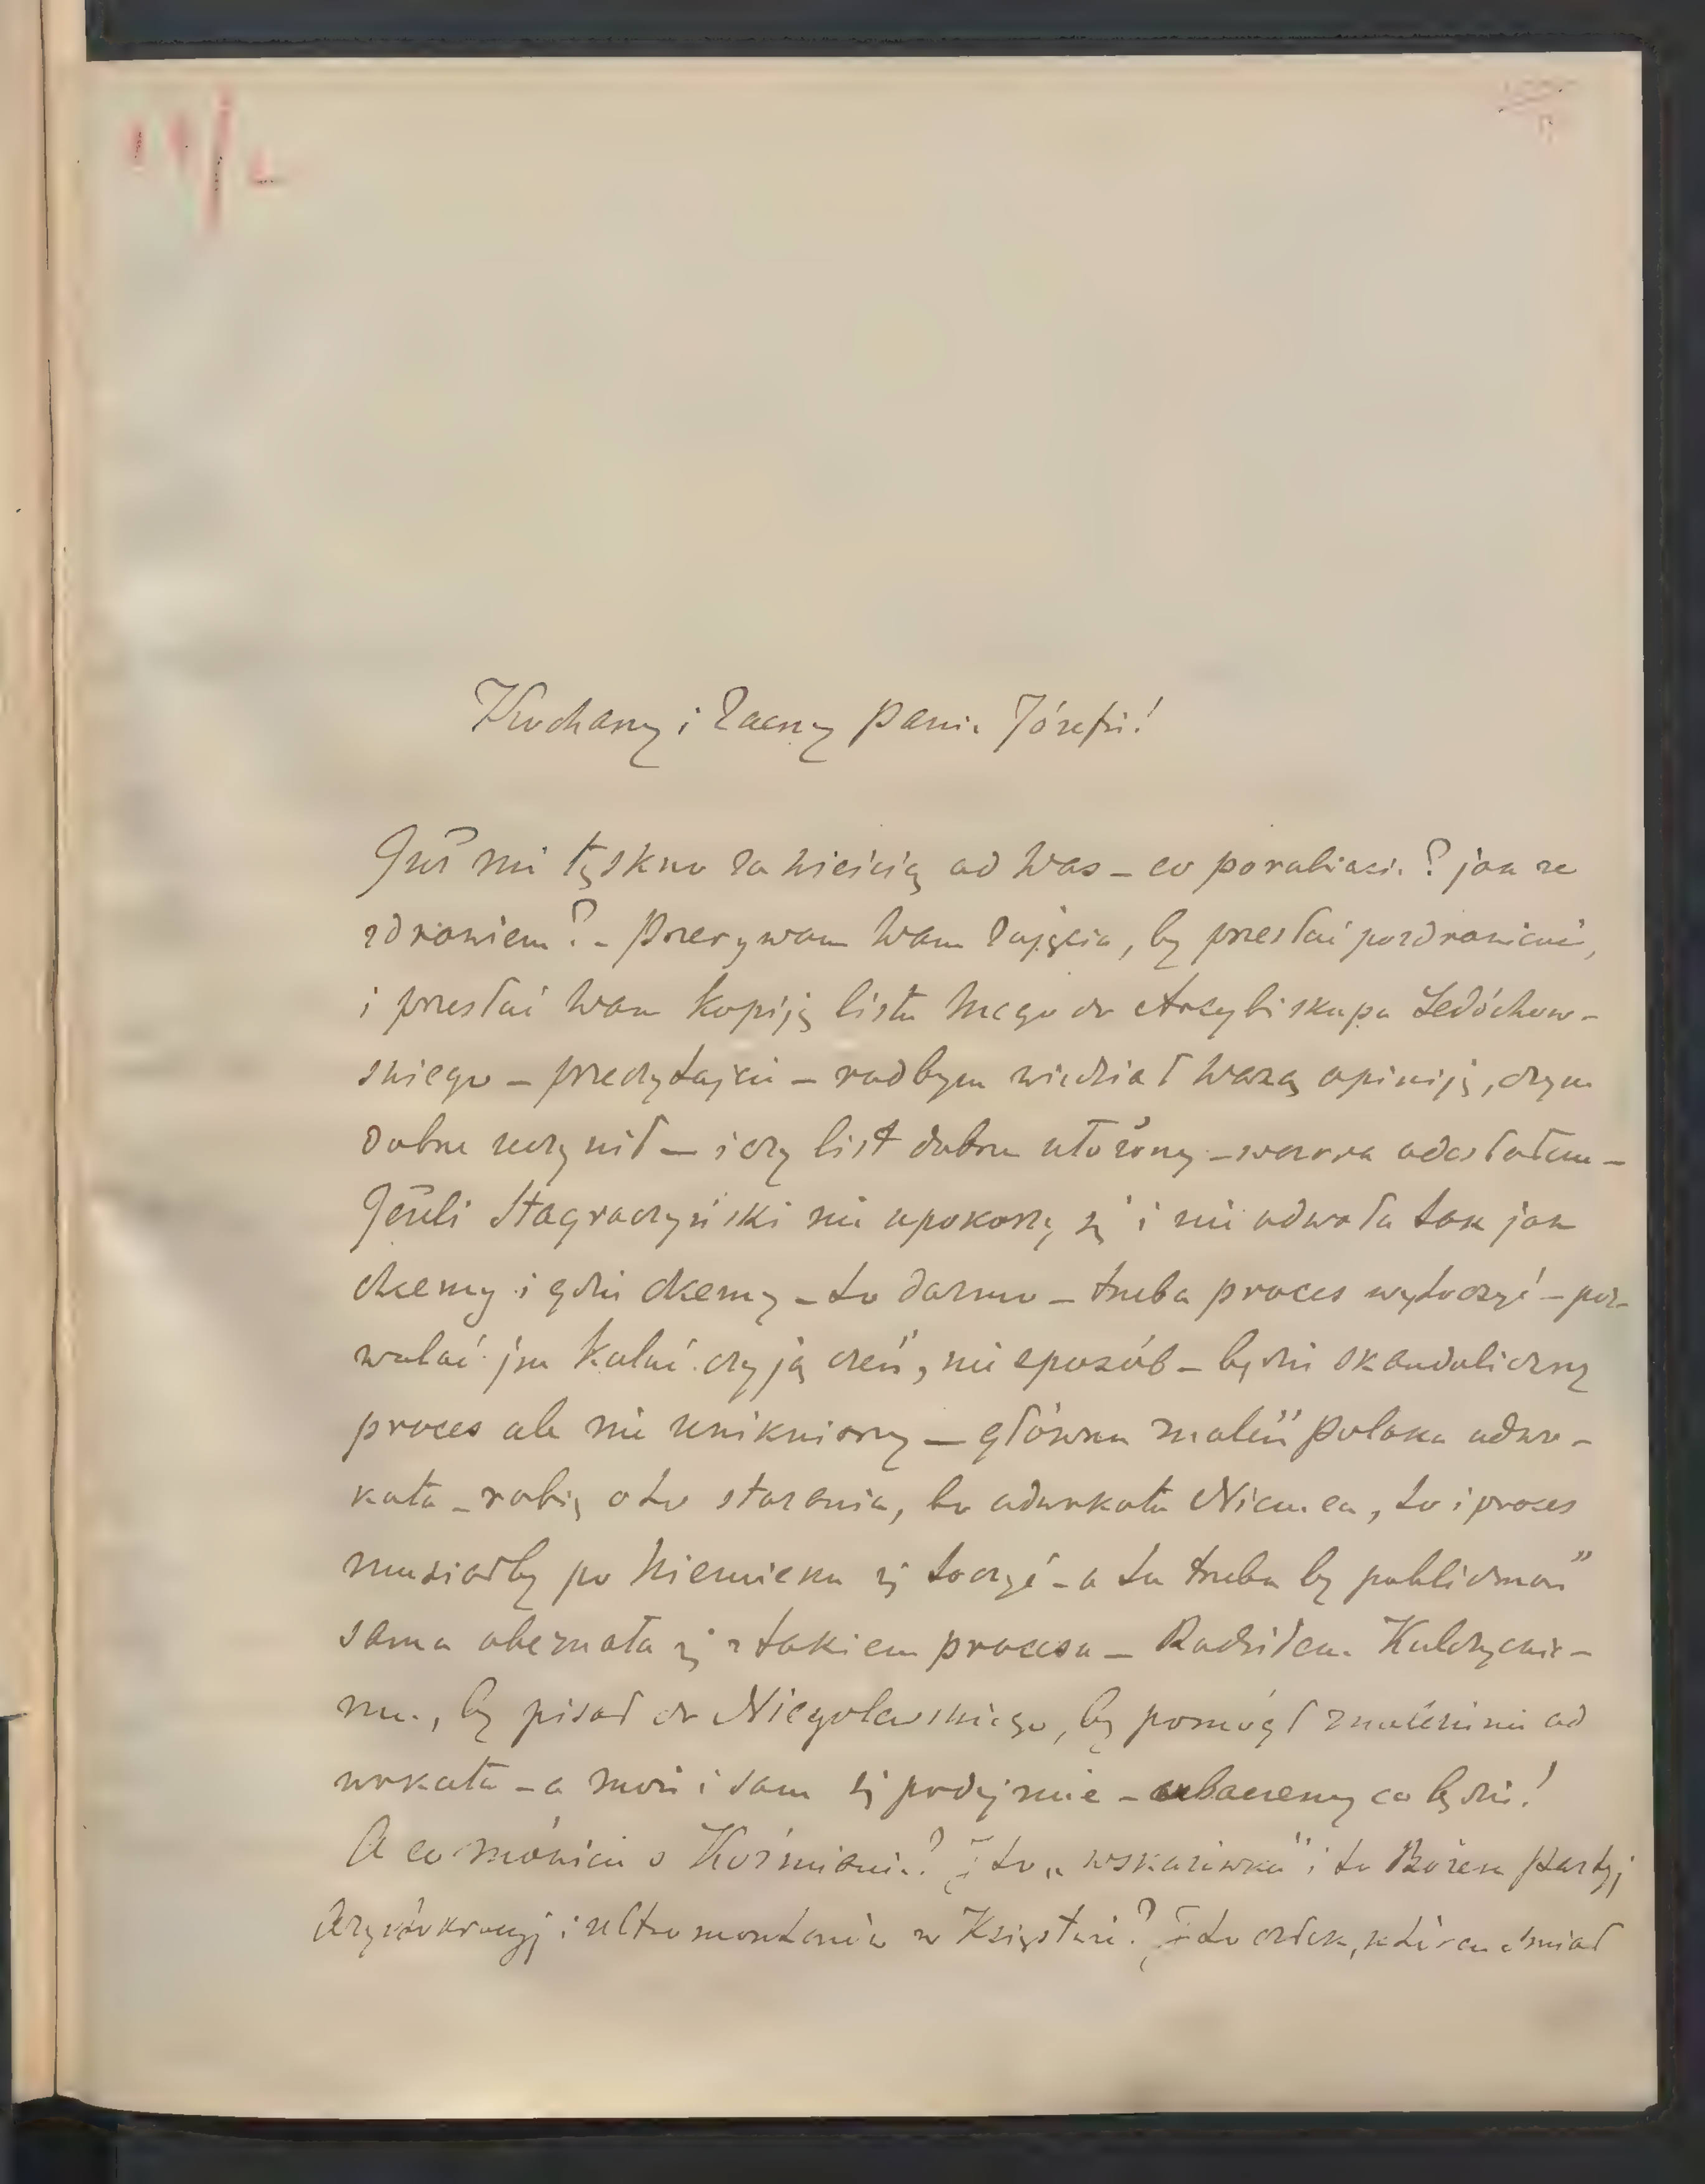 Kochany i Zacny Panie Józefie!
Już mi tęskno za wieścią od Was – co porabiacie? jak ze
zdrowiem? – Przerywam Wam zajęcia, by przesłać pozdrowienie,
i przesłać Wam kopiją listu mego do Arcybiskupa Ledóchow-
skiego – przeczytajcie – radbym wiedział waszą opiniją, czym
dobrze uczynił – i czy list dobrze ułożony – wczora odesłałem –
Jeżeli Stagraczyński nie upokorzy się i nie odwoła tak jak
chcemy i gdzie chcemy – to darmo – trzeba proces wytoczyć – poz-
walać jm kalać czyją cześć, nie sposób – będzie skandaliczny
proces ale nie unikniony – główna znaleść Polaka adwo-
kata – robię o to starania, bo adwokata Niemca, to i proces
musiałby po niemiecku się toczyć – a tu trzeba by publiczność
sama obeznała się z takiem procesem – Radziłem Kulczyckie-
mu, by pisał do Niegolewskiego, by pomógł znalezienie ad
wokata – a może i sam się podejmie – zobaczemy co będzie!
A co mówicie o Koźmianie? I to „wskazówka" i to Bożek partyj
Arystokracyj i ultramontanów w Księstwie? I to człek, którem śmiał